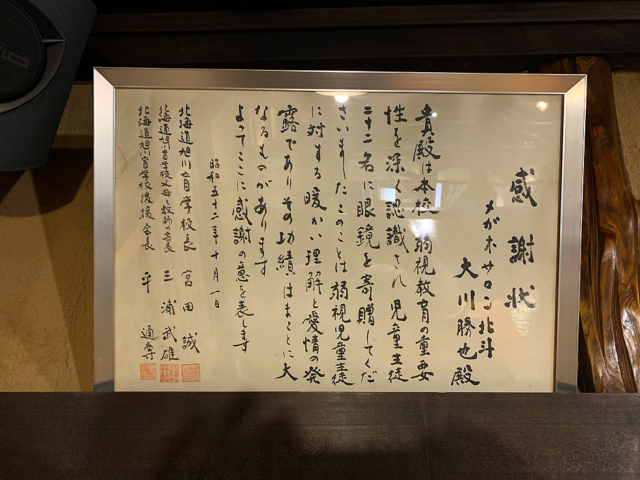 感謝状
メガネサロン北斗
大川勝也殿
貴殿は本校弱視教育の重要
性を深く認識され児童生徒
二十二名に眼鏡を寄贈してくだ
さいましたこのことは弱視児童生徒
に対する暖かい理解と愛情の発
露でありその功績はまことに大
なるものがあります
よってここに感謝の意を表します
昭和五十二年十月一日
北海道旭川盲学校長 宮田誠
北海道旭川盲学校父母と教師の会長 三浦武雄
北海道旭川盲学校後援会長 平通尊